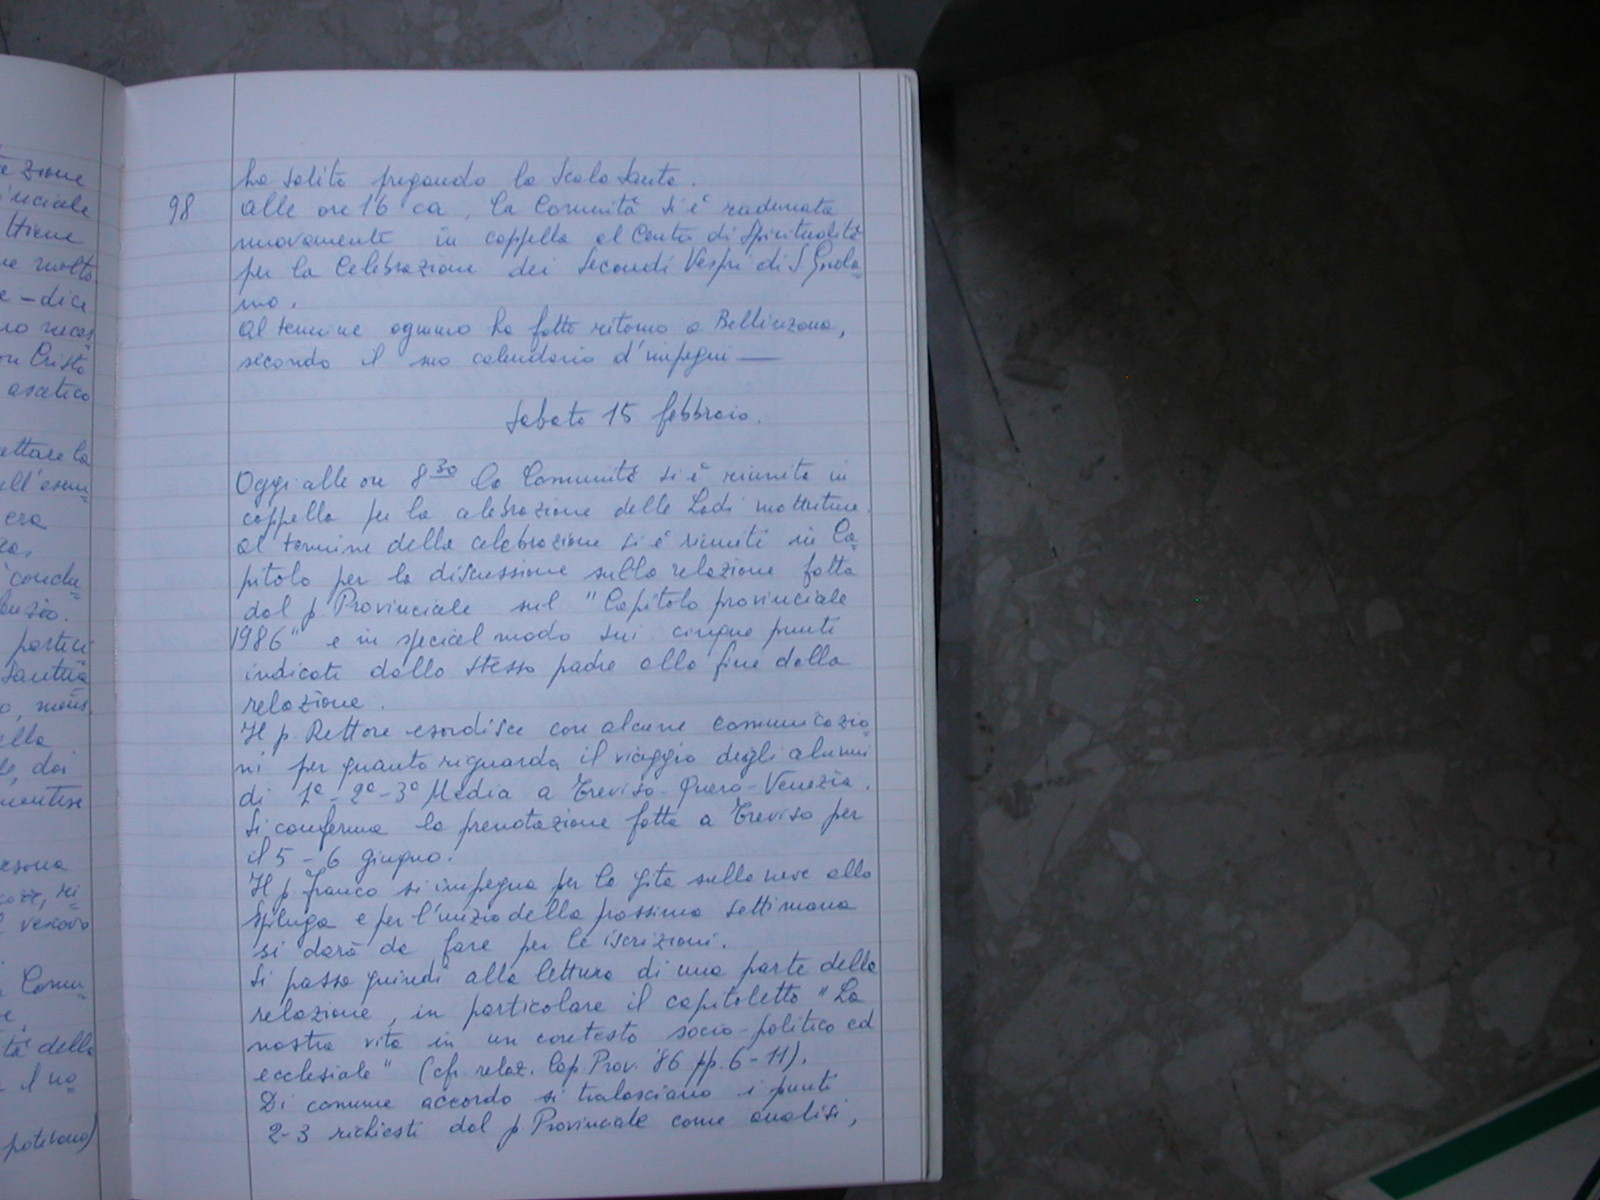 ha salita pregando la Scala Santa.
98
alle ore 16 ca, la Comunità si è radunata
nuovamente in cappella al Centro di Spiritualità
per la Celebrazione dei Secondi Vespri di S. Girola=
mo.
Al termine ognuno ha fatto ritorno a Bellinzona,
secondo il suo calendario d'impegni —
Sabato 15 febbraio.
Oggi alle ore 8 30 la Comunità si è riunita in
cappella per la celebrazione delle Lodi mattutine.
Al termine della celebrazione si è riuniti in Ca=
pitolo per la discussione sulla relazione fatta
dal p. Provinciale sul "Capitolo provinciale
1986" e in special modo sui cinque punti
indicati dallo stesso padre alla fine della
relazione.
Il p. Rettore esordisce con alcune comunicazio=
ni per quanto riguarda il viaggio degli alunni
di 1ª - 2ª - 3ª Media a Treviso - Quero - Venezia.
Si conferma la prenotazione fatta a Treviso per
il 5 - 6 giugno.
Il p. Franco si impegna per la gita sulla neve allo
Spluga e per l'inizio della prossima settimana
si darà da fare per le iscrizioni.
Si passa quindi alla lettura di una parte della
relazione, in particolare il capitoletto "La
nostra vita in un contesto socio-politico ed
ecclesiale" (cfr. relaz. Cap. Prov. '86 pp. 6 - 11).
Di comune accordo si tralasciano i punti
2-3 richiesti dal p. Provinciale come analisi,